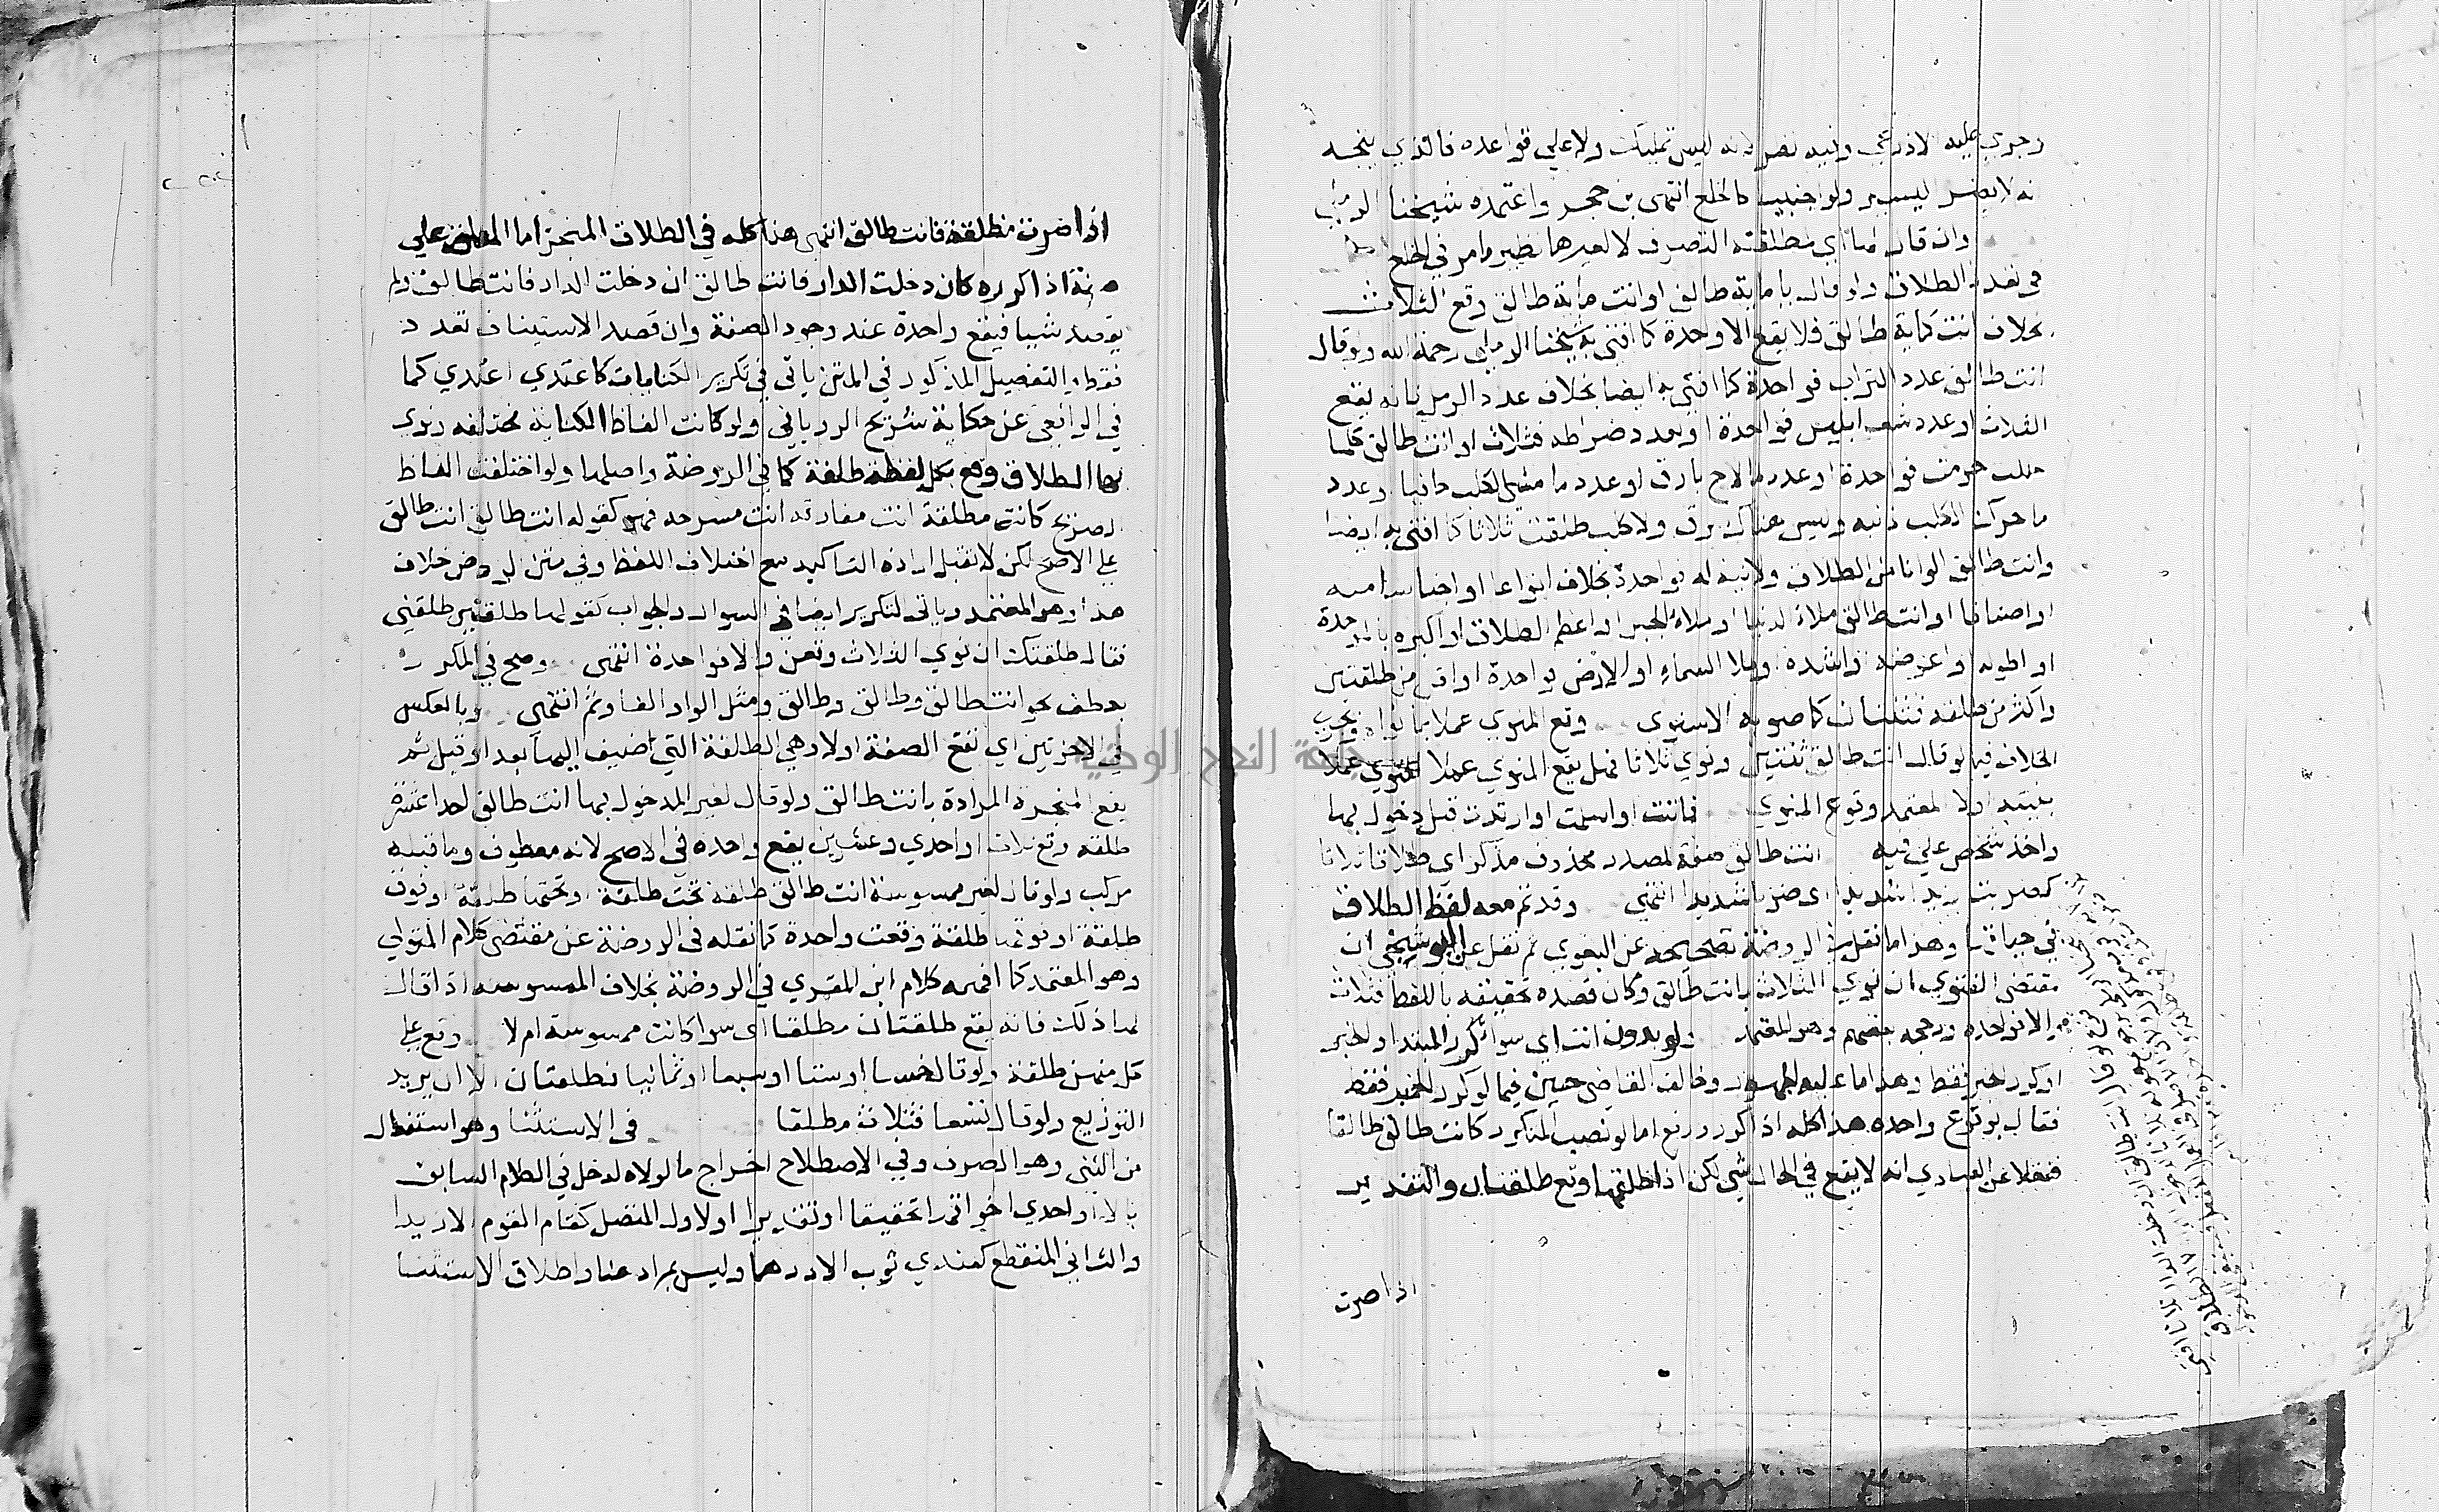 وجري عليه الاذرعي وفيه نظر لانه ليس تمليك ولا علي قواعده فالذي يتجه
انه لا يضر اليسير ولو اجنبيا كالخلع انتهى بن حجر واعتمده شيخنا الرملي
وان قال لها اي مطلقته التصرف لا لغيرها نظير ما مر في الخلع
في تعدد الطلاق ولو قال يا ماية طالق او انت ماية طالق وقع الثلاث
بخلاف انت كماية طالق فلا يقع الا وحدة كما افتي به شيخنا الرملي رحمه الله ولو قال
انت طالق عدد التراب فواحدة كما افتي به ايضا بخلاف عدد الرمل فانه يقع
الثلاث او عدد شعر ابليس فواحدة او بعدد ضراطه فثلاث او انت طالق كلما
حللت حرمت فواحدة او عدد ما لاح بارق او عدد ما مشي الكلب حافيا وعدد
ما حرك الكلب ذنبه وليس هناك برق ولا كلب طلقت ثلاثا كما افتي به ايضا
وانت طالق الوانا من الطلاق ولا نية له فواحدة بخلاف انواعا او اجناسا منه
او اصنافا او انت طالق ملاء الدنيا او ملاء الجبل او اعظم الطلاق او اكبره بالموحدة
او اطوله او اعرضه او اشده او ملا السماء او الارض فواحدة او اقل من طلقتين
واكثر من طلقة فثنتان كما صوبه الاسنوي وقع المنوي عملا بما نواه ويجري
الخلاف فيما لو قال انت طالق ثنتين ونوي ثلاثا فهل يقع المنوي عملا
بنيته او لا المعتمد وقوع المنوي فماتت او اسلمت او ارتدت قبل دخول بها
واخذ شخص علي فيه انت طالق صفة لمصدر محذوف مذكر اي طلاقا ثلاثا
كضربت زيدا شديدا اي ضربا شديدا انتهي وقد تم معه لفظ الطلاق
في حياتها وهذا ما نقل في الروضة تصحيحه عن البغوي ثم نقل عن البوشنجي ان
مقتضي الفتوي ان نوي الثلاث بانت طالق وكان قصده تحقيقه باللفظ فثلاث
والا فواحدة ورجحه بعضهم وهو المعتمد ولو بدون انت اي سوا كرر المبتدا والخبر
او كرر الخبر فقط وهذا ما عليه الجمهور وخالف القاضي حسين فيما لو كرر الخبر فقط
فقال بوقوع واحده هذا كله اذا كرر ورفع اما لو نصب المكرر كانت طالق طالقا
فنقلا عن العبادي انه لا يقع في الحال شي لكن اذا طلقها وقع طلقتان والتقدير
اذا صرت
اذا صرت مطلقة فانت طالق انتهى هذا كله في الطلاق المنجز اما المعلق علي
صفة اذا كرره كان دخلت الدار فانت طالق ان دخلت الدار فانت طالق ولم
يقصد شيا فيقع واحدة عند وجود الصفة وان قصد الاستيناف تعدد
فقط والتفصيل المذكور في المتن ياتي في تكرير الكنايات كاعتدي اعتدي كما
في الرافعي عن حكاية شريح الروياني ولو كانت الفاظ الكناية مختلفه ونوي
بها الطلاق وقع بكل لفظة طلقة كما في الروضة واصلها ولو اختلفت الفاظ
الصريح كانت مطلقة انت مفارقة انت مسرحه فهو كقوله انت طالق انت طالق
علي الاصح لكن لا تقبل ارادة التاكيد مع اختلاف اللفظ وفي متن الروض خلاف
هذا وهو المعتمد وياتي التكرير ايضا في السوال والجواب كقولها طلقني طلقني
فقال طلقتك ان نوي الثلاث وقعن والا فواحدة انتهى وصح في المكرر
بعطف نحو انت طالق وطالق وطالق ومثل الواو الفا وثم انتهى وبالعكس
في الاخرتين اي تقع الصفة اولا وهي الطلقة التي اضيف اليها بعد او قبل ثم
يقع المنجزه المرادة بانت طالق ولو قال لغير المدخول بها انت طالق احدا عشرة
طلقة وقع ثلاث او احدي وعشرين يقع واحده في الاصح لانه معطوف وما قبله
مركب ولو قال لغير ممسوسة انت طالق طلقة تحت طلقة او تحتها طلقة او فوق
طلقة او فوقها طلقة وقعت واحدة كما نقله في الروضة عن مقتضي كلام المتولي
وهو المعتمد كما افهمه كلام ابن المقري في الروضة بخلاف الممسوسه اذا قال
لها ذلك فانه يقع طلقتان مطلقا اي سوا كانت ممسوسة ام لا وقع علي
كل منهن طلقة ولو قال خمسا او ستا او سبعا او ثمانيا فطلقتان الا ان يريد
التوزيع ولو قال تسعا فثلاث مطلقا في الاستثنا وهو استفعال
من الثني وهو الصرف وفي الاصطلاح اخراج ما لولاه لدخل في الكلام السابق
بالا او احدي اخواتها تحقيقا او تقديرا والاول المتصل كقام القوم الا زيدا
والثاني المنقطع كعندي ثوب الا درهما وليس بمراد هنا واطلاق الاستثنا
جامعة النجاح الوطنية